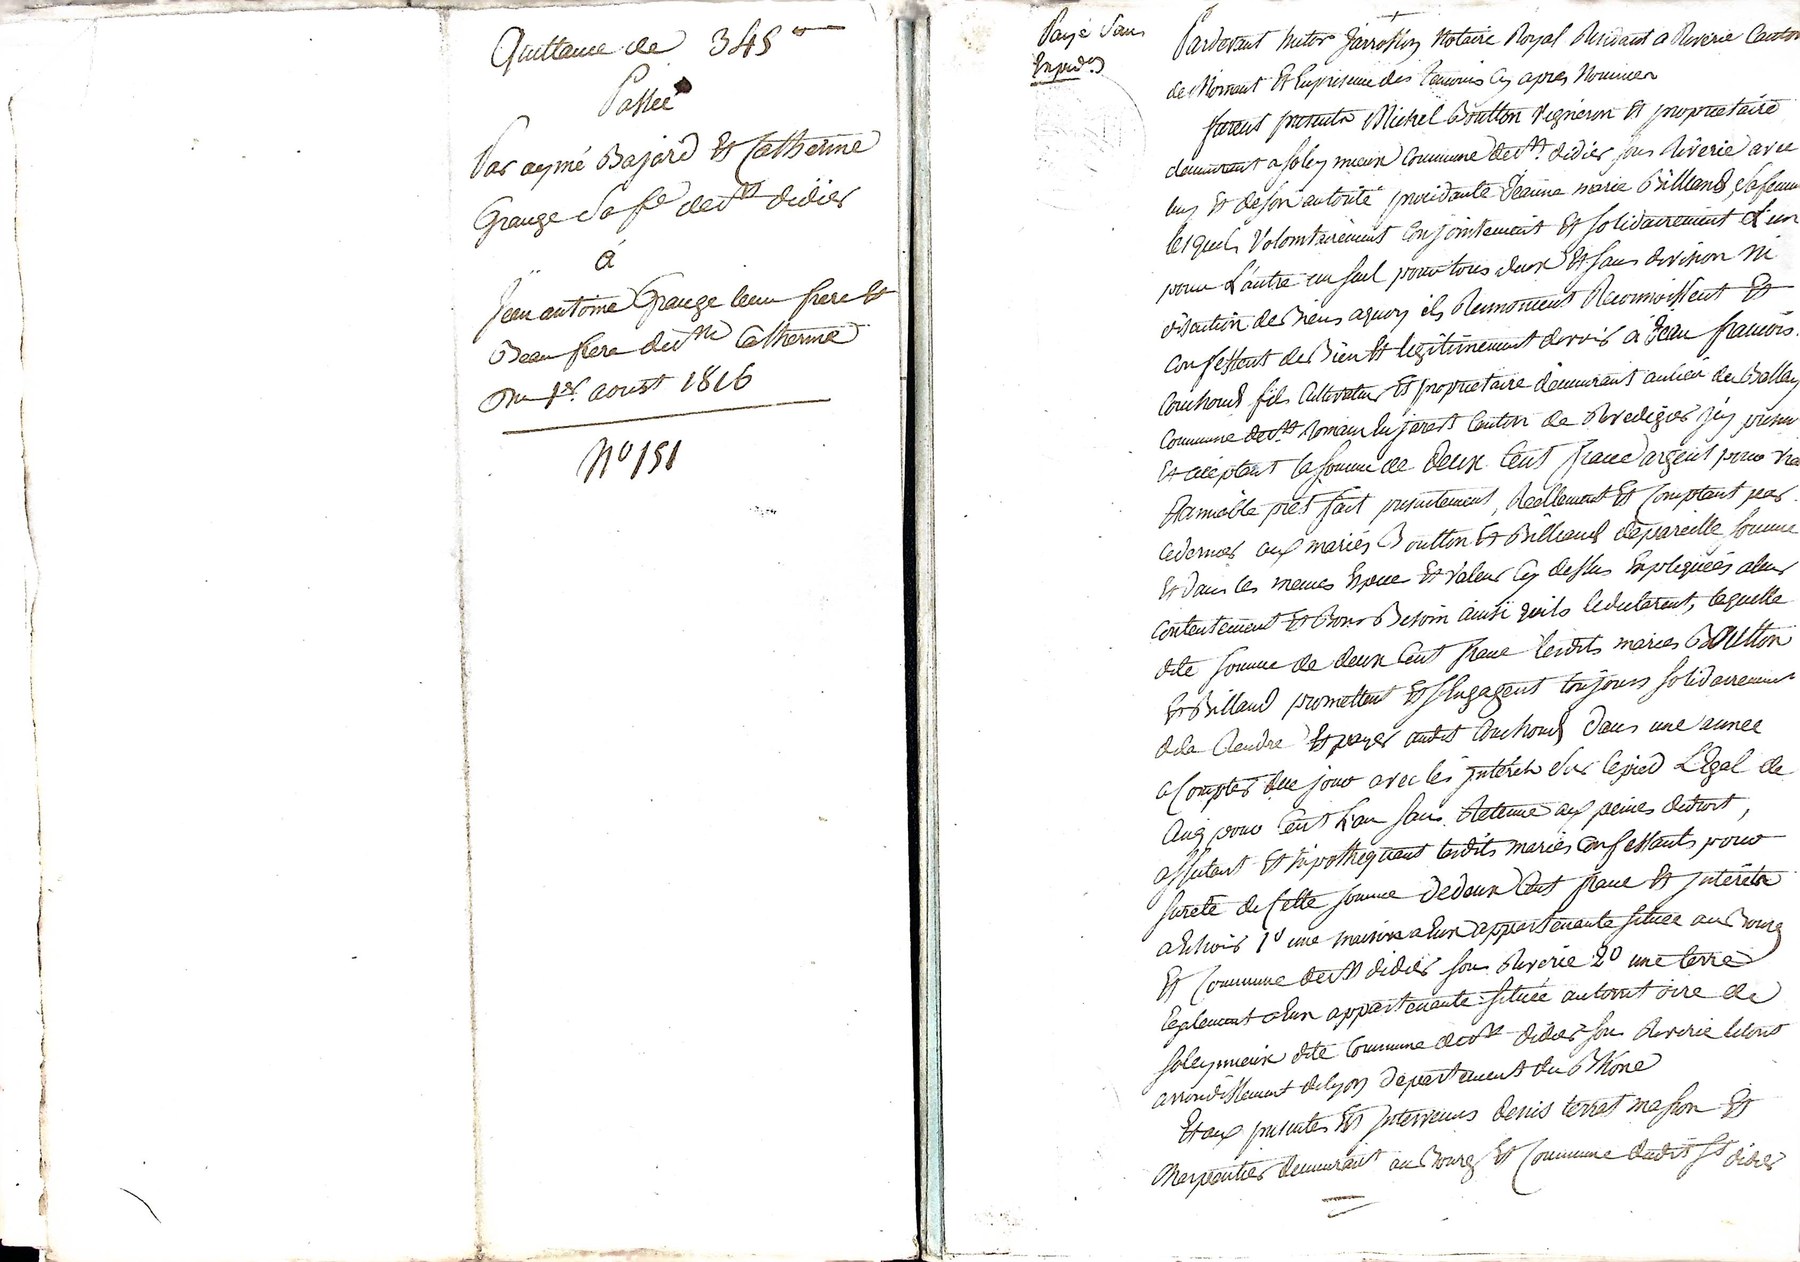 Quittance de 345 #
Passée
Par aymé Bajard Et Catherine
Grange Sa fe de St didier
á
Jean antoine Grange leur frere Et
Beau frere de St Catherine
Du 1er. aoust 1816
No 151
Payé Sans
Pardevant Jarrossiez Notaire Royal Residant a Riverie Canton
de Mornant Et En presence des temoins Cy apres Nommes
furent presents Michel Boutton Vigneron Et proprietaire
demeurant a soleymieux Commune de St. didier sous Riverie avec
luy Et de son autorité procedante Jeanne marie Billaud, sa femme
lesquels Volontairement Conjointement Et solidairement L'un
pour L'autre un seul pour tous deux Et sans division Ni
discution de Biens aquoy ils Renoncent Reconnoissent Et
Confessent de Bien Et legitimement devoir á Jean francois
Couchoud fils Cultivateur Et proprietaire demeurant au lieu de Ballay
Commune de St. Romain En jarest Canton de Rivedegier icy present
Et acceptant la somme de deux Cent franc argent pour vrai
Et amiable pret fait presentement, Reellement Et Comptant par
ce dernier aux mariés Boutton Et Billaud de pareille somme
Et dans les memes Espece Et Valeur Cy dessus Expliquées a leur
Contentement Et Bon Besoin ainsi quils le declarent, laquelle
dite somme de deux Cent franc lesdits mariés Boutton
Et Billaud promettent Et s'Engagent toujours solidairement
de la Rendre Et payer audit Couchoud dans une année
a Compter de ce jour avec les jnterets sur le pied Légal de
Cinq pour Cent L'an sans Retenue aux peines de droit,
affectant Et hipothequant lesdits mariés Confessants pour
sureté de Cette somme de deux Cent franc Et jnterets
a Echoir 1o une maison a Eux appartenante située au Bourg
Et Commune de St didier sous Riverie 2o une terre
Egalement a Eux appartenante située au territoire de
soleymieux dite Commune de St didier sous Riverie le tout
arrondissement de lyon departement du Rhone
Et aux presentes Est jntervenus denis terrat masson Et
Charpentier demeurant au Bourg Et Commune dudit St didier